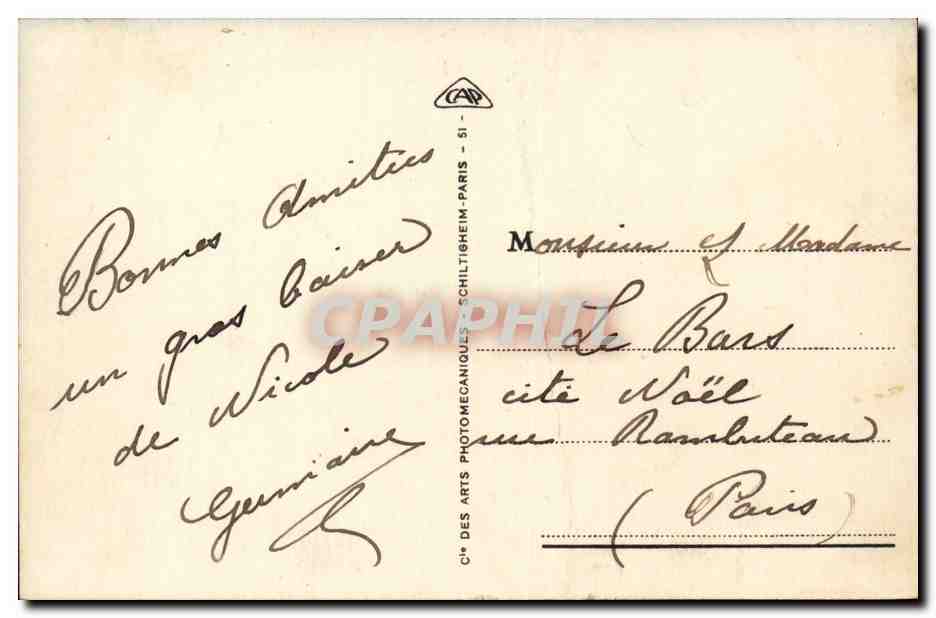 Bonnes Amitiés
un gros baiser
de Nicole
Germaine
CAP
Cie DES ARTS PHOTOMECANIQUES - SCHILTIGHEIM-PARIS - 51 -
Monsieur & Madame
Le Bars
cité Noël
rue Rambuteau
(Paris)
CPAPHIL